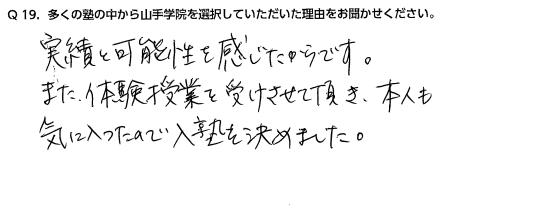 Q 19. 多くの塾の中から山手学院を選択していただいた理由をお聞かせください。
実績と可能性を感じたからです。
また、体験授業を受けさせて頂き、本人も
気に入ったので入塾を決めました。